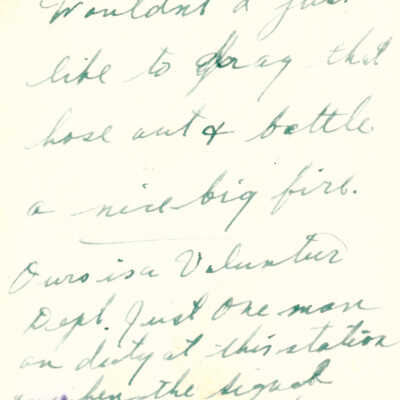 Wouldn't I just
like to drag that
hose out & battle
a nice big fire.
Ours is a Voluntur
Dept. Just One man
on duty at this station
when the signal